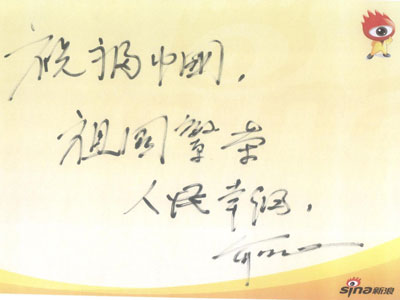 祝福中国，
祖国繁荣
人民幸福，
sina新浪